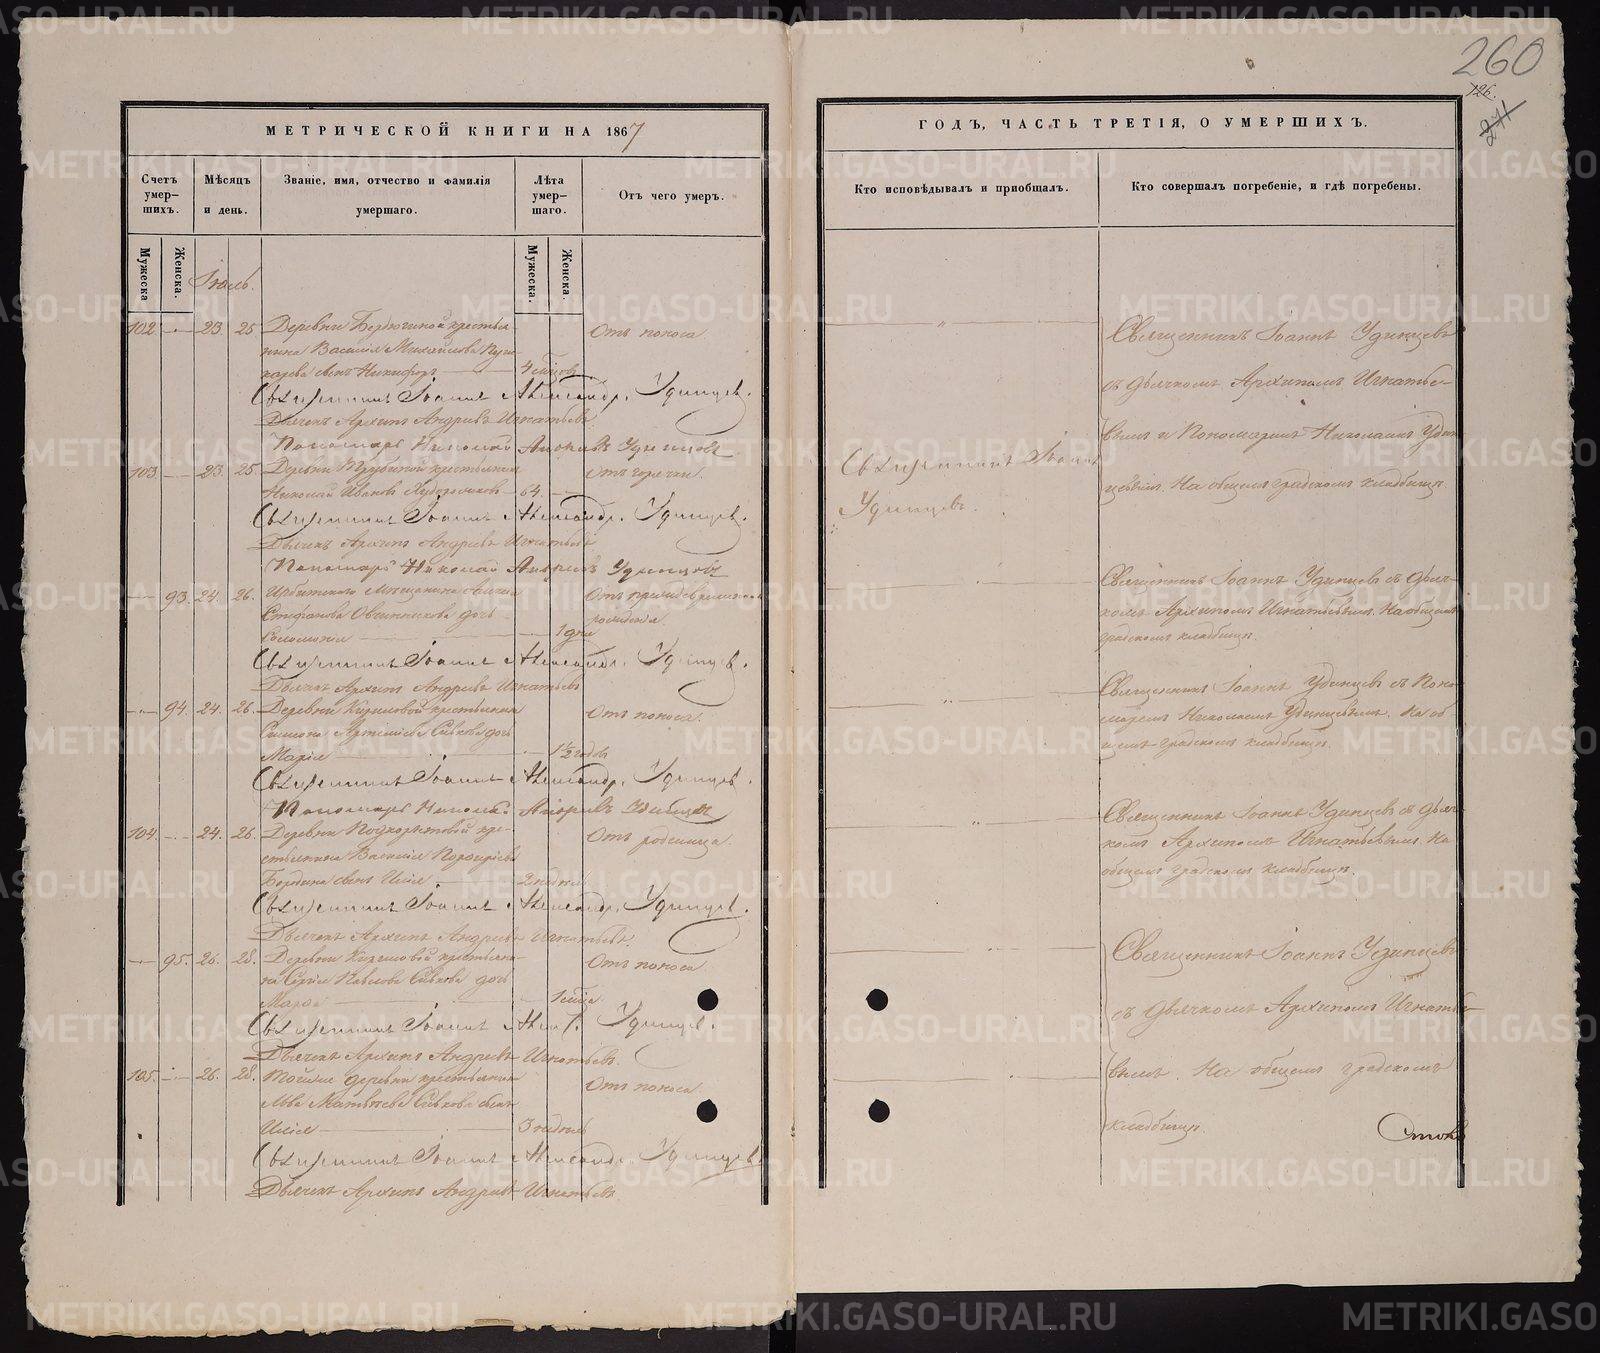 260
126.
271
МЕТРИЧЕСКОЙ КНИГИ НА 1867
ГОДЪ, ЧАСТЬ ТРЕТІЯ, О УМЕРШИХЪ.
Счетъ умер-шихъ.
Мѣсяцъ и день.
Званіе, имя, отчество и фамилія умершаго.
Лѣта умер-шаго.
Отъ чего умеръ.
Кто исповѣдывалъ и пріобщалъ.
Кто совершалъ погребеніе, и гдѣ погребены.
Мужеска
Женска.
Мужеска.
Женска.
Іюль.
102 23 25 Деревни крестья-
нина Василія Михайлова
сынъ Никифоръ 4 Отъ поноса
Священникъ Іоаннъ Александр. Удинцевъ.
Дьячекъ Архипъ Андреевъ Игнатьевъ
Пономарь Николай Удинцовъ
Священникъ Іоаннъ Удинцевъ
съ дьячкомъ Архипомъ Игнатье-
вымъ и Пономаремъ Николаемъ Удин-
цевымъ. На общемъ градскомъ кладбищѣ.
103 23. 25. Деревни крестьянинъ
Николай Ивановъ 64. Отъ горячки.
Священникъ Іоаннъ Александр. Удинцевъ.
Дьячекъ Архипъ Андреевъ Игнатьевъ
Пономарь Николай Андреевъ Удинцовъ
Священникъ Іоаннъ
Удинцевъ.
93. 24. 26. Ирбитскаго мещанина
Стефанова Овчинникова дочь
Соломонія 1 дня Отъ преждевременнаго
рожденія.
Священникъ Іоаннъ Александр. Удинцевъ.
Дьячекъ Архипъ Андреевъ Игнатьевъ
Священникъ Іоаннъ Удинцевъ съ дьяч-
комъ Архипомъ Игнатьевымъ. На общемъ
градскомъ кладбищѣ.
94. 24. 26. Деревни Кириловой крестьянина
Симеона Артеміева Сивкова дочь
Марія 1½ годовъ Отъ поноса.
Священникъ Іоаннъ Александр. Удинцевъ.
Пономарь Николай Андреевъ
Священникъ Іоаннъ Удинцевъ съ Поно-
маремъ Николаемъ Удинцевымъ. На об-
щемъ градскомъ кладбищѣ.
104. 24. 26. Деревни кре-
стьянина Василія Порфиріева
сынъ Илія 2 недель Отъ родимца.
Священникъ Іоаннъ Александр. Удинцевъ.
Дьячекъ Архипъ Андреевъ Игнатьевъ.
Священникъ Іоаннъ Удинцевъ съ дьяч-
комъ Архипомъ Игнатьевымъ. На
общемъ градскомъ кладбищѣ.
95. 26. 28. Деревни Кириловой крестьяни-
на Сергія Павлова Сивкова дочь
1 Отъ поноса
Священникъ Іоаннъ Алек. Удинцев.
Дьячекъ Архипъ Андреевъ Игнатьевъ.
Священникъ Іоаннъ Удинцевъ
съ дьячкомъ Архипомъ Игнатье-
вымъ. На общемъ градскомъ
кладбищѣ.
105. 26. 28. Той же деревни крестьянина
Льва Матвѣева Сивкова сынъ
Илія 3 недель Отъ поноса
Священникъ Іоаннъ Александр. Удинцевъ.
Дьячекъ Архипъ Андреевъ Игнатьевъ.
METRIKI.GASO-URAL.RU